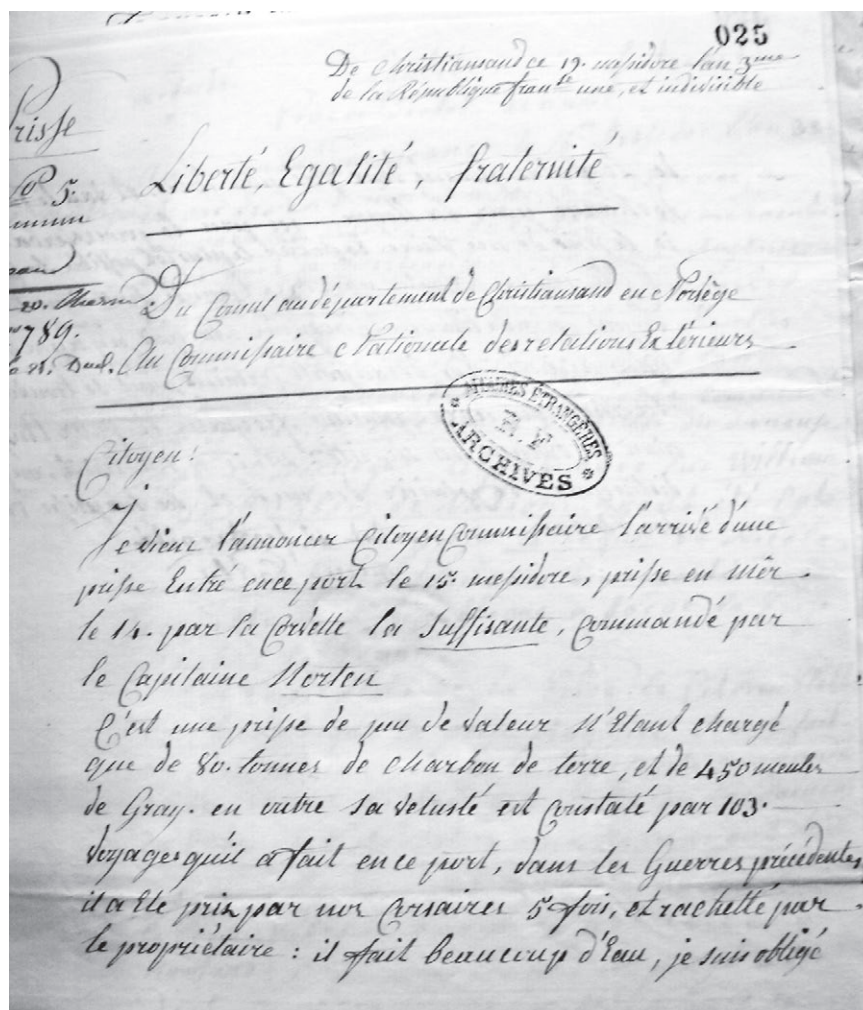 025
De Christiansand ce 19. messidore l'an 3eme
de la République franse une, et indivisible
Prisse
No 5.
Liberté, Egalité, fraternité
Du Consul au département de Christiansand en Norvège
20.
1789.
Au Commissaire Nationale des relations Extérieurs
AFFAIRES ÉTRANGÈRES
R. F
ARCHIVES
Citoyen!
Je viens t'annoncer Citoyen Commissaire l'arrivé d'une
prisse Entré en ce port le 15 messidore, prisse en mér
le 14. par la Corvette la Suffisante, Commandé par
le Capitaine Norten
C'est une prisse de peu de valeur N'Etant chargé
que de 80. tonnes de Charbon de terre, et de 450 meules
de Gray. en outre sa vetusté est Constaté par 103.
Voyages qu'il a fait en ce port, dans les Guerres précédentes
il a Eté pris par nos Corsaires 5 fois, et rachetté par
le propriétaire : il fait beaucoup d'Eau, je suis obligé